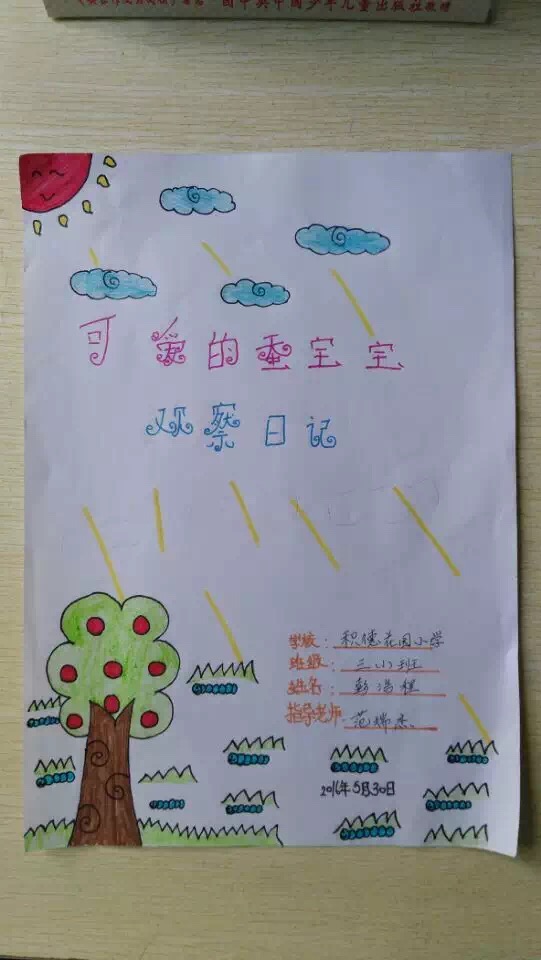 中国少年儿童出版社
可爱的蚕宝宝
观察日记
学校：积德花园小学
班级：三(1)班
姓名：彭浩程
指导老师：范瑞杰
2016年5月30日